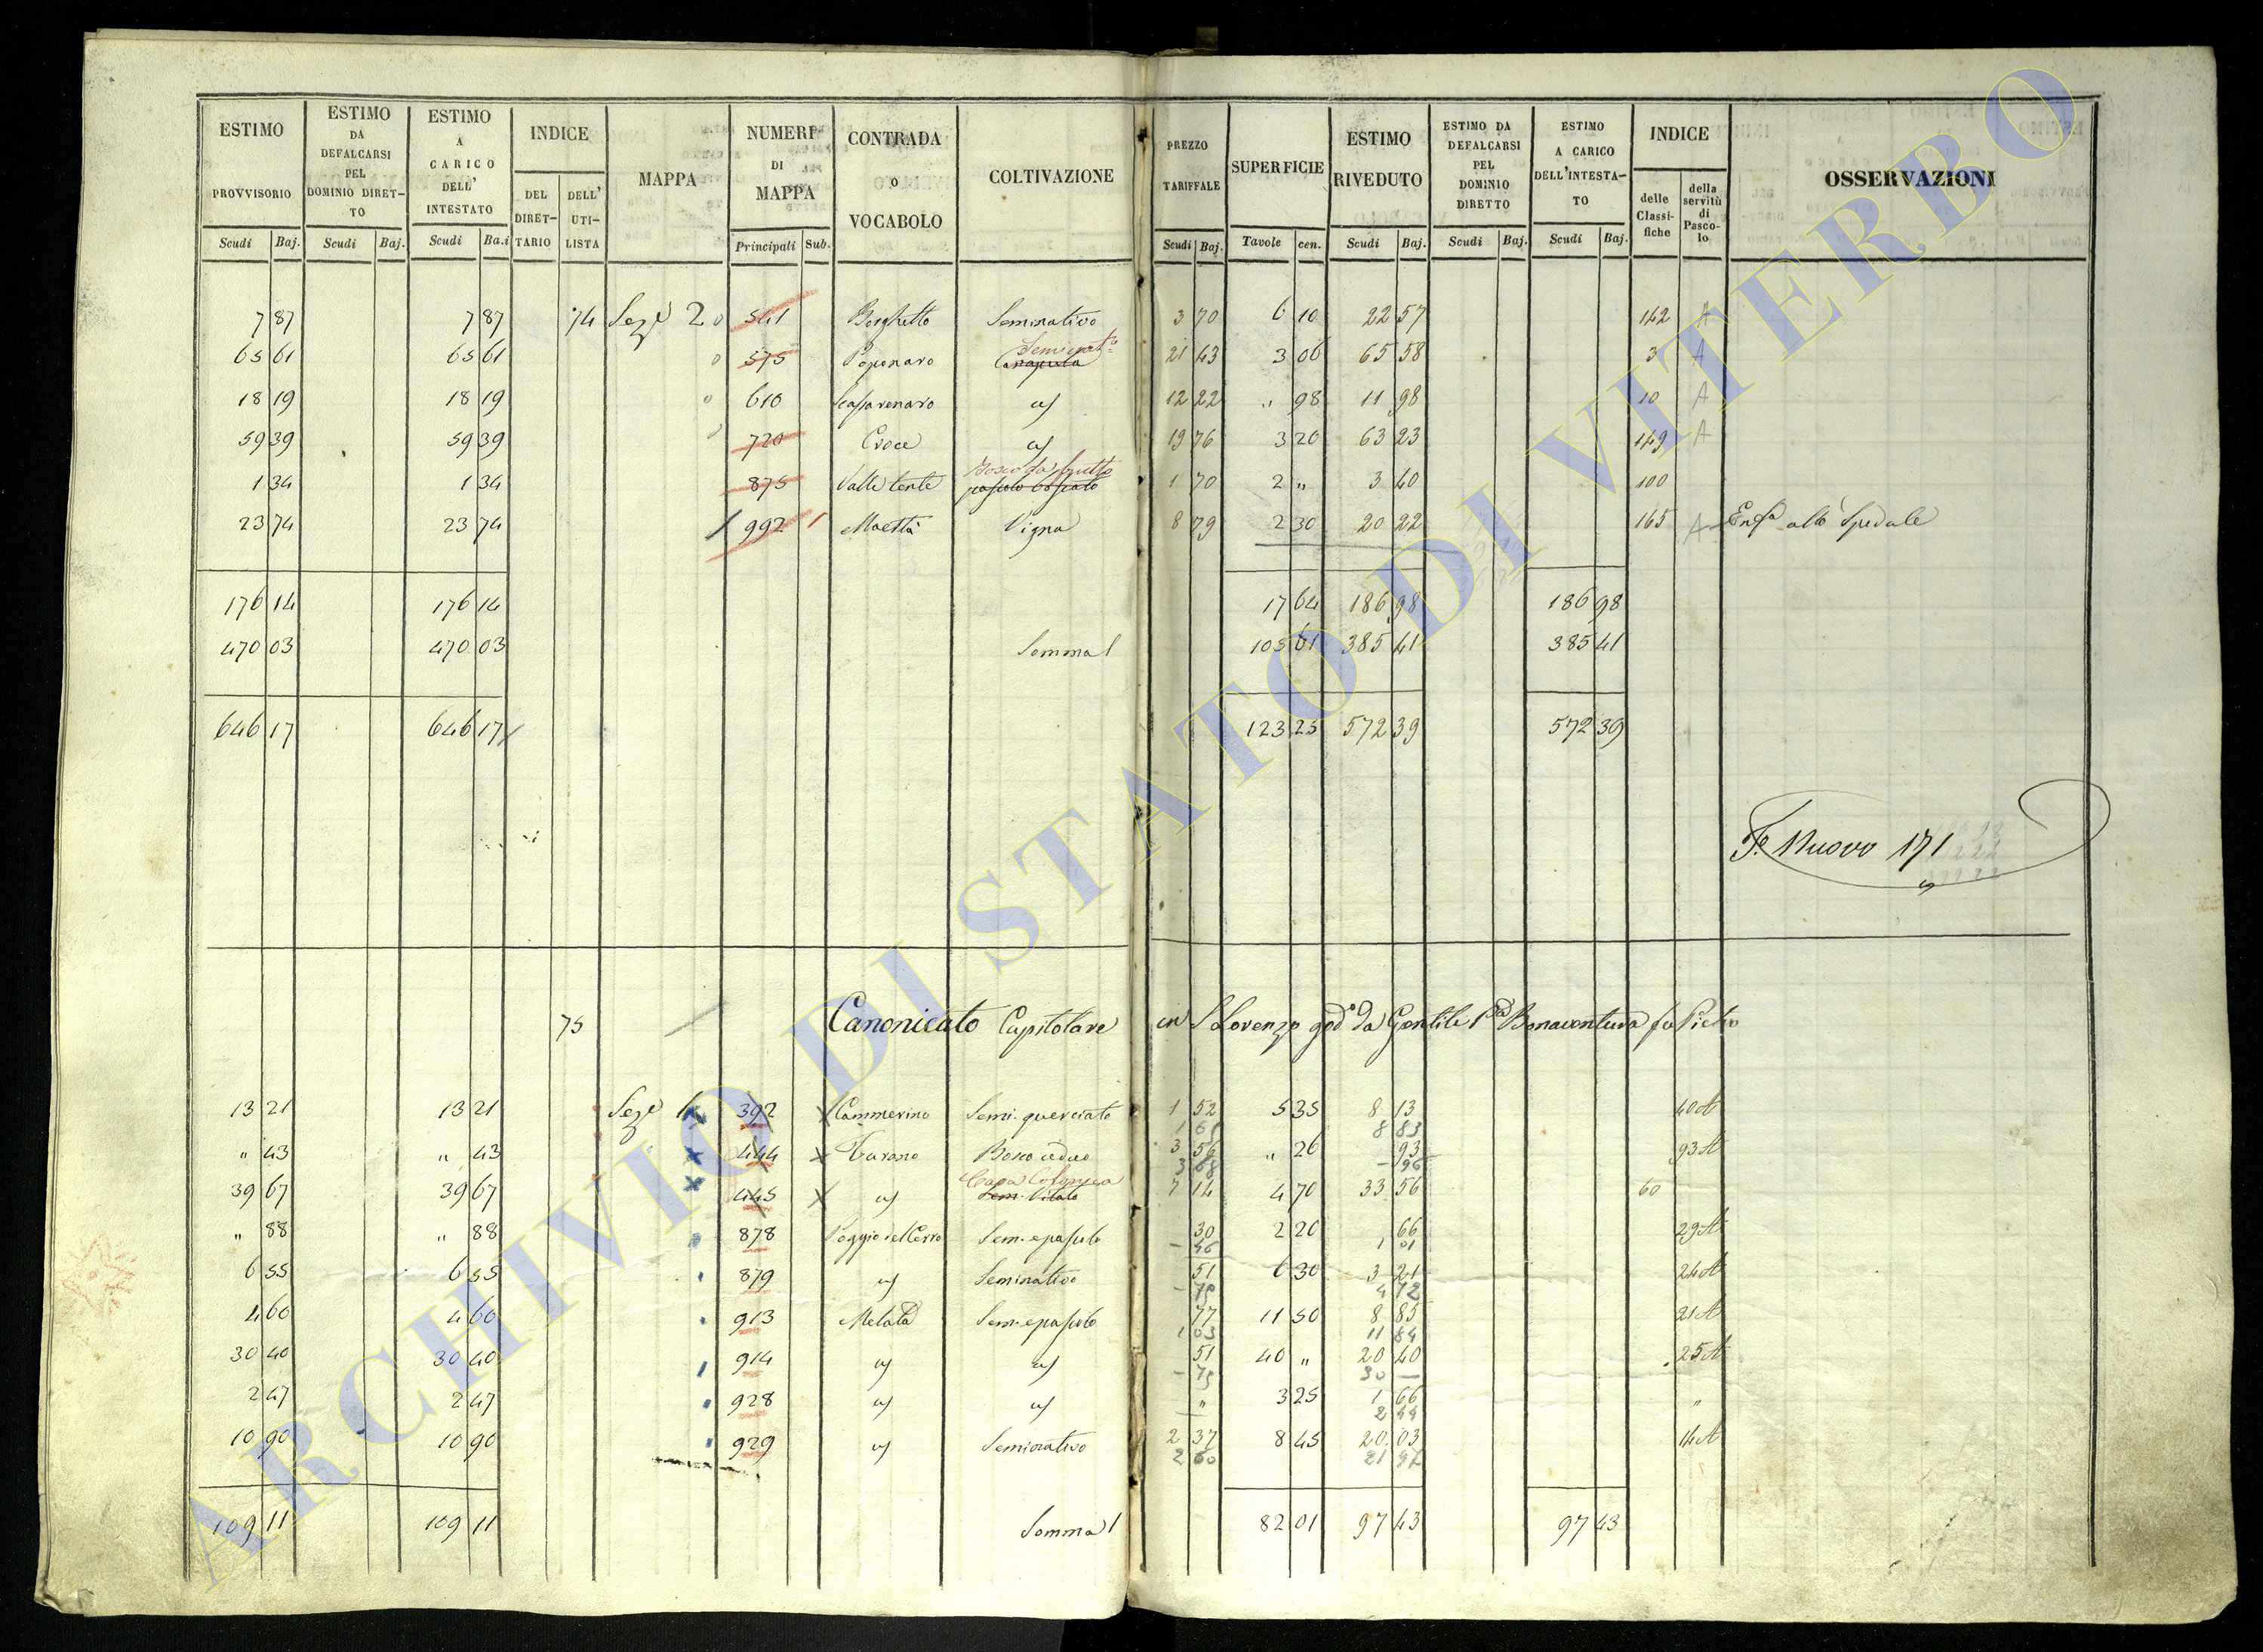 ESTIMO PROVVISORIO Scudi Baj. ESTIMO DA DEFALCARSI PEL DOMINIO DIRET- TO Scudi Baj. ESTIMO A CARICO DELL' INTESTATO Scudi Ba.i INDICE DEL DIRET- TARIO DELL' UTI- LISTA MAPPA NUMERI DI MAPPA Principali Sub. CONTRADA O VOCABOLO COLTIVAZIONE PREZZO TARIFFALE Scudi Baj. SUPERFICIE Tavole cen. ESTIMO RIVEDUTO Scudi Baj. ESTIMO DA DEFALCARSI PEL DOMINIO DIRETTO Scudi Baj. ESTIMO A CARICO DELL'INTESTA- TO Scudi Baj. INDICE delle Classi- fiche della servitù di Pasco- lo OSSERVAZIONI
7 87 7 87 74 Seze 2 541 Borghetto Seminativo 3 70 6 10 22 57 142 A
65 61 65 61 575 Poponaro Canapula 21 43 3 06 65 58 3 A
18 19 18 19 610 12 22 " 98 11 98 10 A
59 39 59 39 720 Croce 19 76 3 20 63 23 149 A
1 34 1 34 875 Valle pascolo 1 70 2 " 3 40 100
23 74 23 74 992 1 Maestà Vigna 8 79 2 30 20 22 165 A Enfa allo Spedale
176 14 176 14 17 64 186 98 186 98
470 03 470 03 Somma 105 61 385 41 385 41
646 17 646 17 123 25 572 39 572 39
Fo Nuovo 171
75 Canonicato Capitolare in S Lorenzo god° da Gentile Bonaventura fu Pietro
13 21 13 21 Seze 1 392 Cammerino Semi. querciato 1 52 5 35 8 13 40 A
8 83
" 43 " 43 444 Bosco ceduo 3 56 " 26 93 93 A
3 68 – 96
Casa Colonica
39 67 39 67 445 Sem. Vitato 7 14 4 70 33 56 60
" 88 " 88 878 Poggio del Cerro Sem. e pascolo 30 2 20 66 29 A
– 46 1 01
6 55 6 55 879 Seminativo 51 6 30 3 21 24 A
– 75 4 72
4 60 4 60 913 Sem. e pascolo 77 11 50 8 85 21 A
1 03 11 84
30 40 30 40 914 51 40 " 20 40 25 A
– 75 30 –
2 47 2 47 928 " 3 25 1 66 "
2 44
10 90 10 90 929 Seminativo 2 37 8 45 20 03 14 A
2 60 21 97
109 11 109 11 Somma 82 01 97 43 97 43
ARCHIVIO DI STATO DI VITERBO